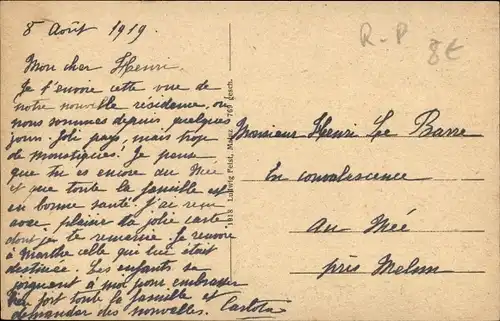 8 Août 1919
Mon cher Henri
Je t'envoie cette vue de
notre nouvelle résidence, où
nous sommes depuis quelques
jours. Joli pays, mais trop
de moustiques! Je pense
que tu es encore au Mée
et que toute la famille est
en bonne santé. J'ai reçu
avec plaisir ta jolie carte
dont je te remercie. Je renvoie
à Marthe celle que lui était
destinée. Les enfants se
joignent à moi pour embrasser
bien fort toute la famille et
demander des nouvelles. Carlota
1918 Ludwig Feist, Mainz 709 gesch.
R-P
8€
Monsieur Henri Le Barre
En convalescence
Au Mée
près Melun